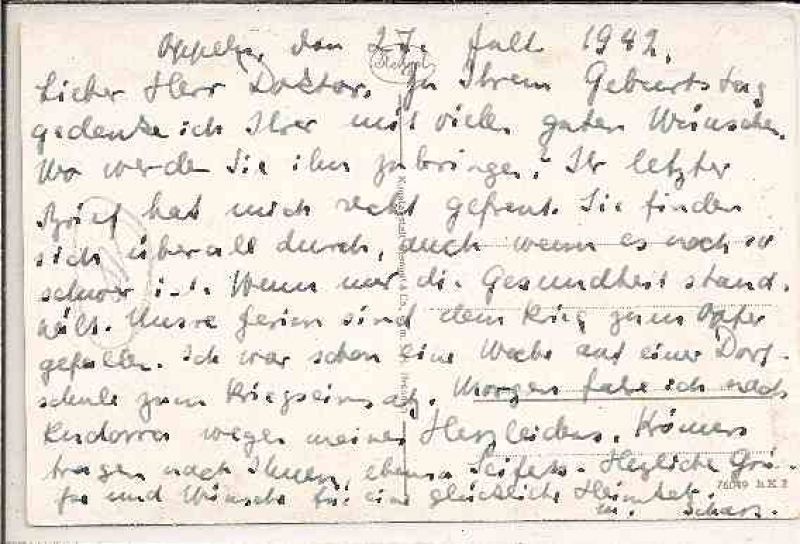 Oppeln, den 27. Juli 1942.
Lieber Herr Doktor, Zu Ihrem Geburtstag
gedenke ich Ihrer mit vielen guten Wünschen.
Wo werden Sie ihn zubringen? Ihr letzter
Brief hat mich recht gefreut. Sie finden
sich überall durch, auch wenn es noch so
schwer ist. Wenn nur die Gesundheit stand-
hält. Unsre Ferien sind dem Krieg zum Opfer
gefallen. Ich war schon eine Woche auf einer Dorf-
schule zum Kriegseinsatz. Morgen fahre ich nach
Kudowa wegen meines Herzleidens. Krömers
fragen nach Ihnen, ebenso Seiferts. Herzliche Grü-
ße und Wünsche für eine glückliche Heimkehr.
76049 b. K. 2